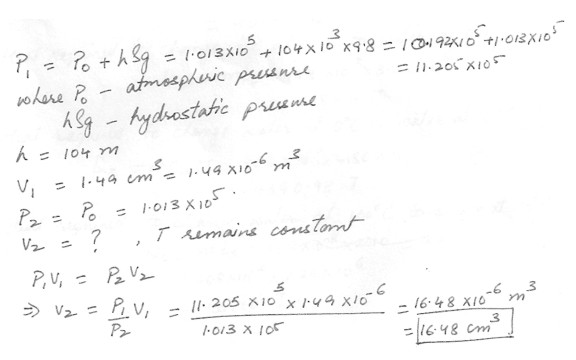 P₁ = P₀ + hSg = 1.013X10⁵ + 104X10³X9.8 = 10.192X10⁵+1.013X10⁵
where P₀ - atmospheric pressure = 11.205X10⁵
hSg - hydrostatic pressure
h = 104 m
V₁ = 1.49 cm³ = 1.49 X10⁻⁶ m³
P₂ = P₀ = 1.013X10⁵.
V₂ = ? , T remains constant
P₁V₁ = P₂V₂
⇒ V₂ = P₁V₁/P₂ = 11.205 X10⁵ X 1.49 X10⁻⁶/1.013 X 10⁵ = 16.48 X10⁻⁶ m³
= 16.48 cm³